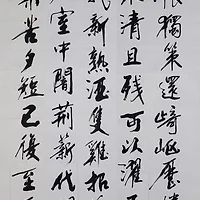 恨獨策還崎嶇歷
清且淺可以濯
我新熟酒雙雞招
室中闇荊薪代
來苦夕短已復至